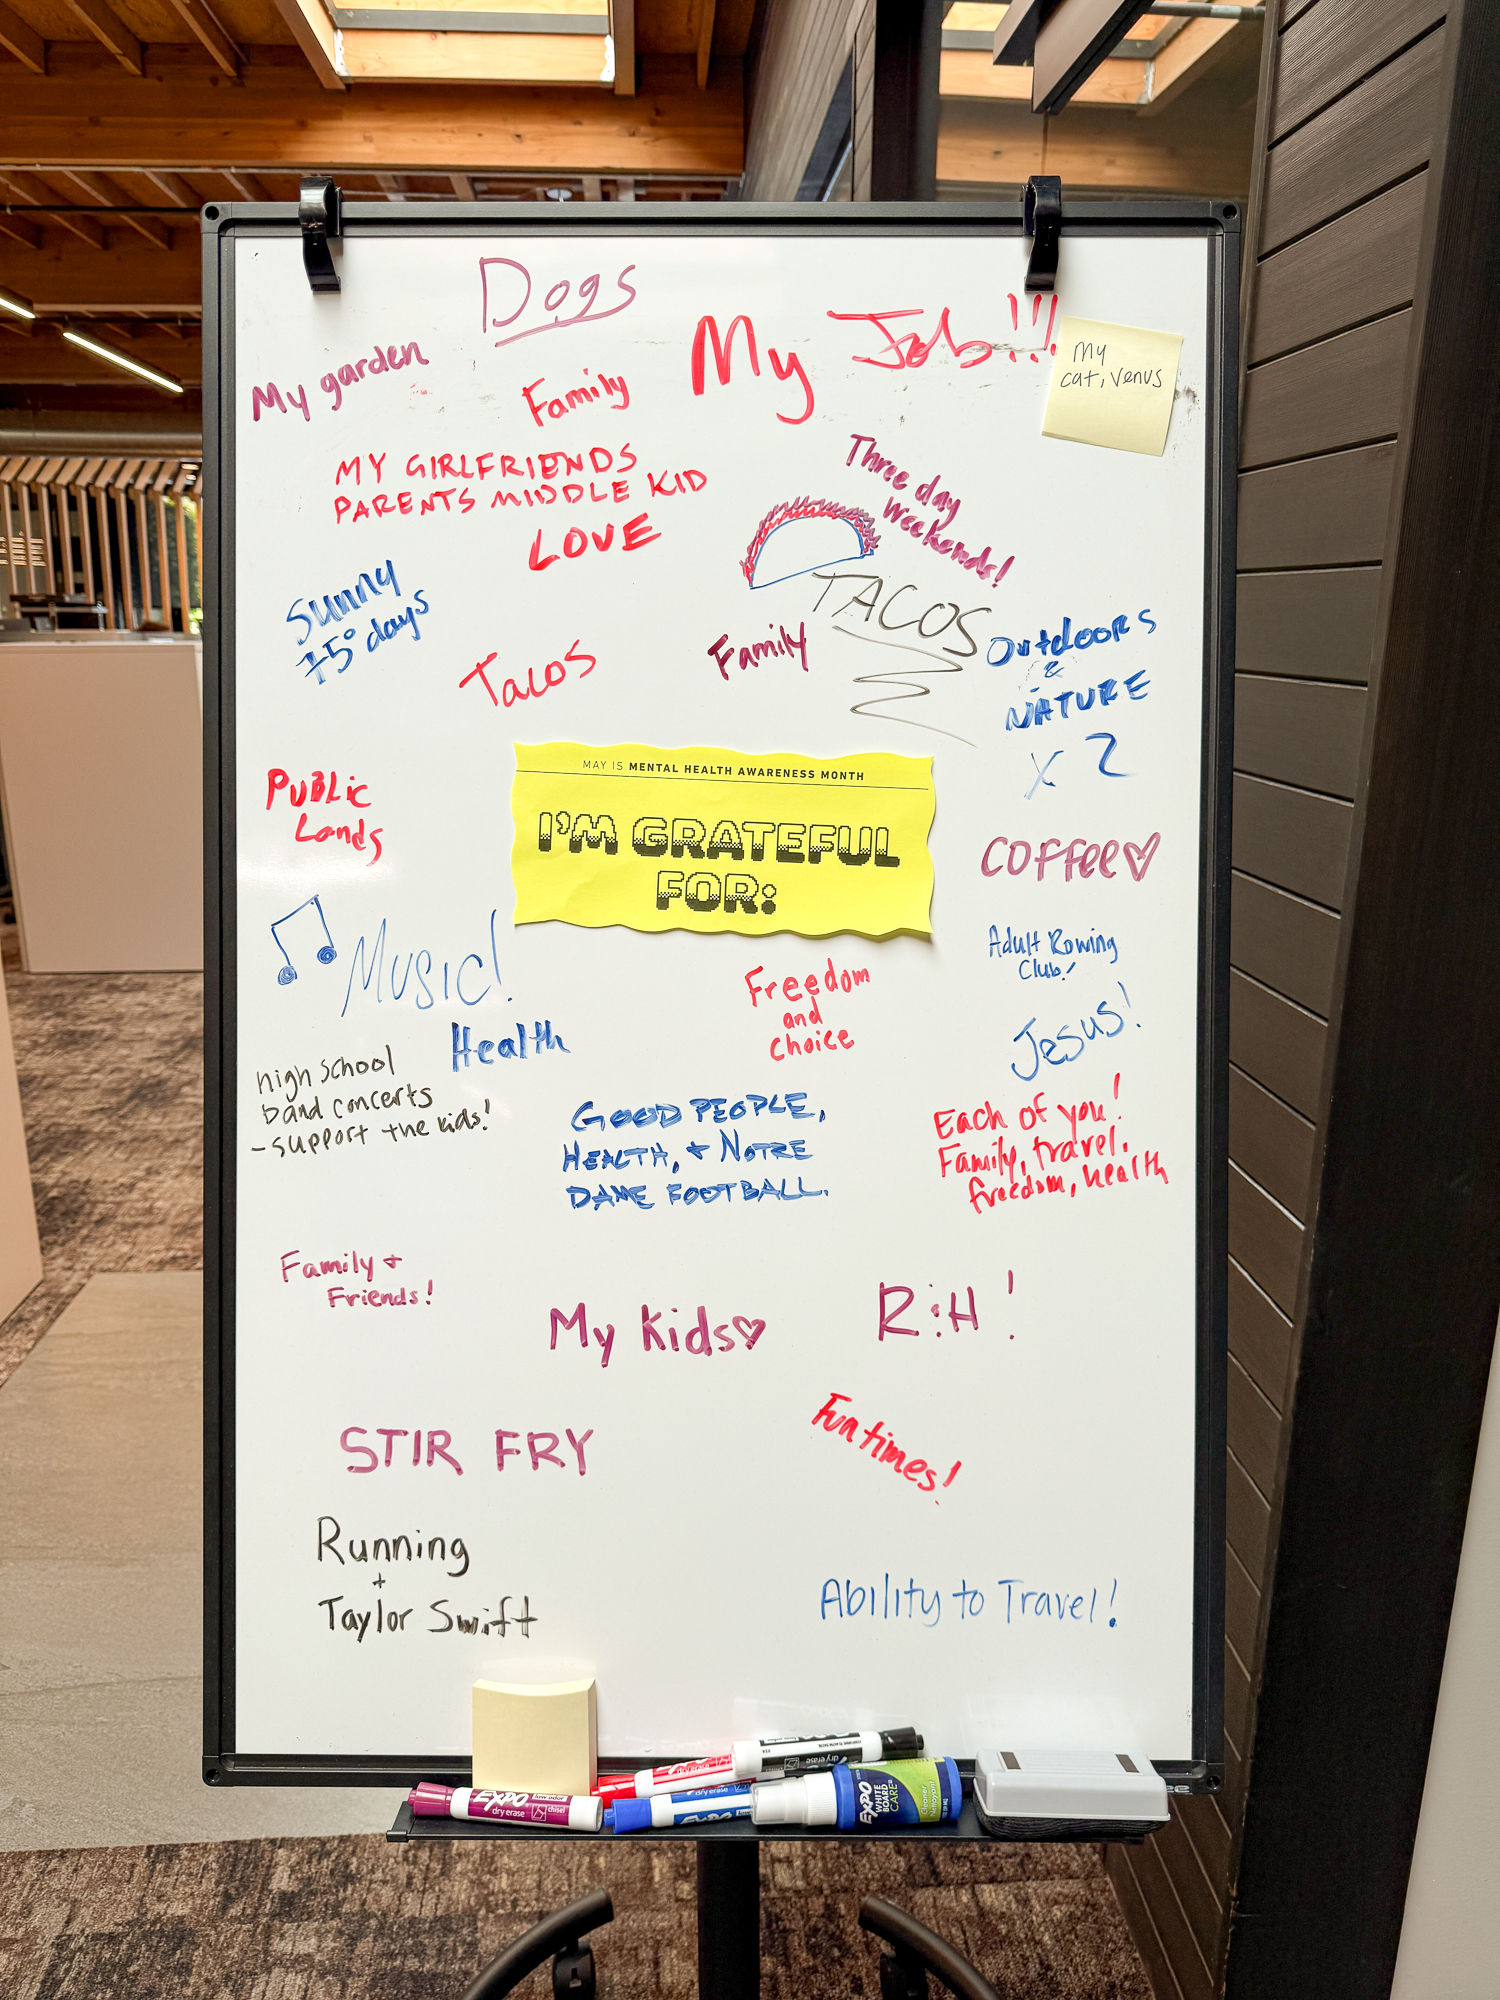 Dogs
My Job!!!
my
cat, venus
My garden
Family
MY GIRLFRIENDS
PARENTS MIDDLE KID
LOVE
Three day
Weekends!
TACOS
Sunny
75° days
Tacos
Family
Outdoors
&
NATURE
X 2
MAY IS MENTAL HEALTH AWARENESS MONTH
I'M GRATEFUL
FOR:
PUBLIC
Lands
COFFEE♡
Music!
Health
Freedom
and
choice
Adult Rowing
Club!
Jesus!
high school
band concerts
- support the kids!
GOOD PEOPLE,
HEALTH, + NOTRE
DAME FOOTBALL.
Each of you!
Family, travel,
freedom, health
Family +
Friends!
My Kids♡
STIR FRY
Fun times!
Running
+
Taylor Swift
Ability to Travel!
EXPO
low odor
dry erase
chisel
dry erase
dry erase
dry erase
EXPO
EXPO
WHITE
BOARD
CARE
Cleaner